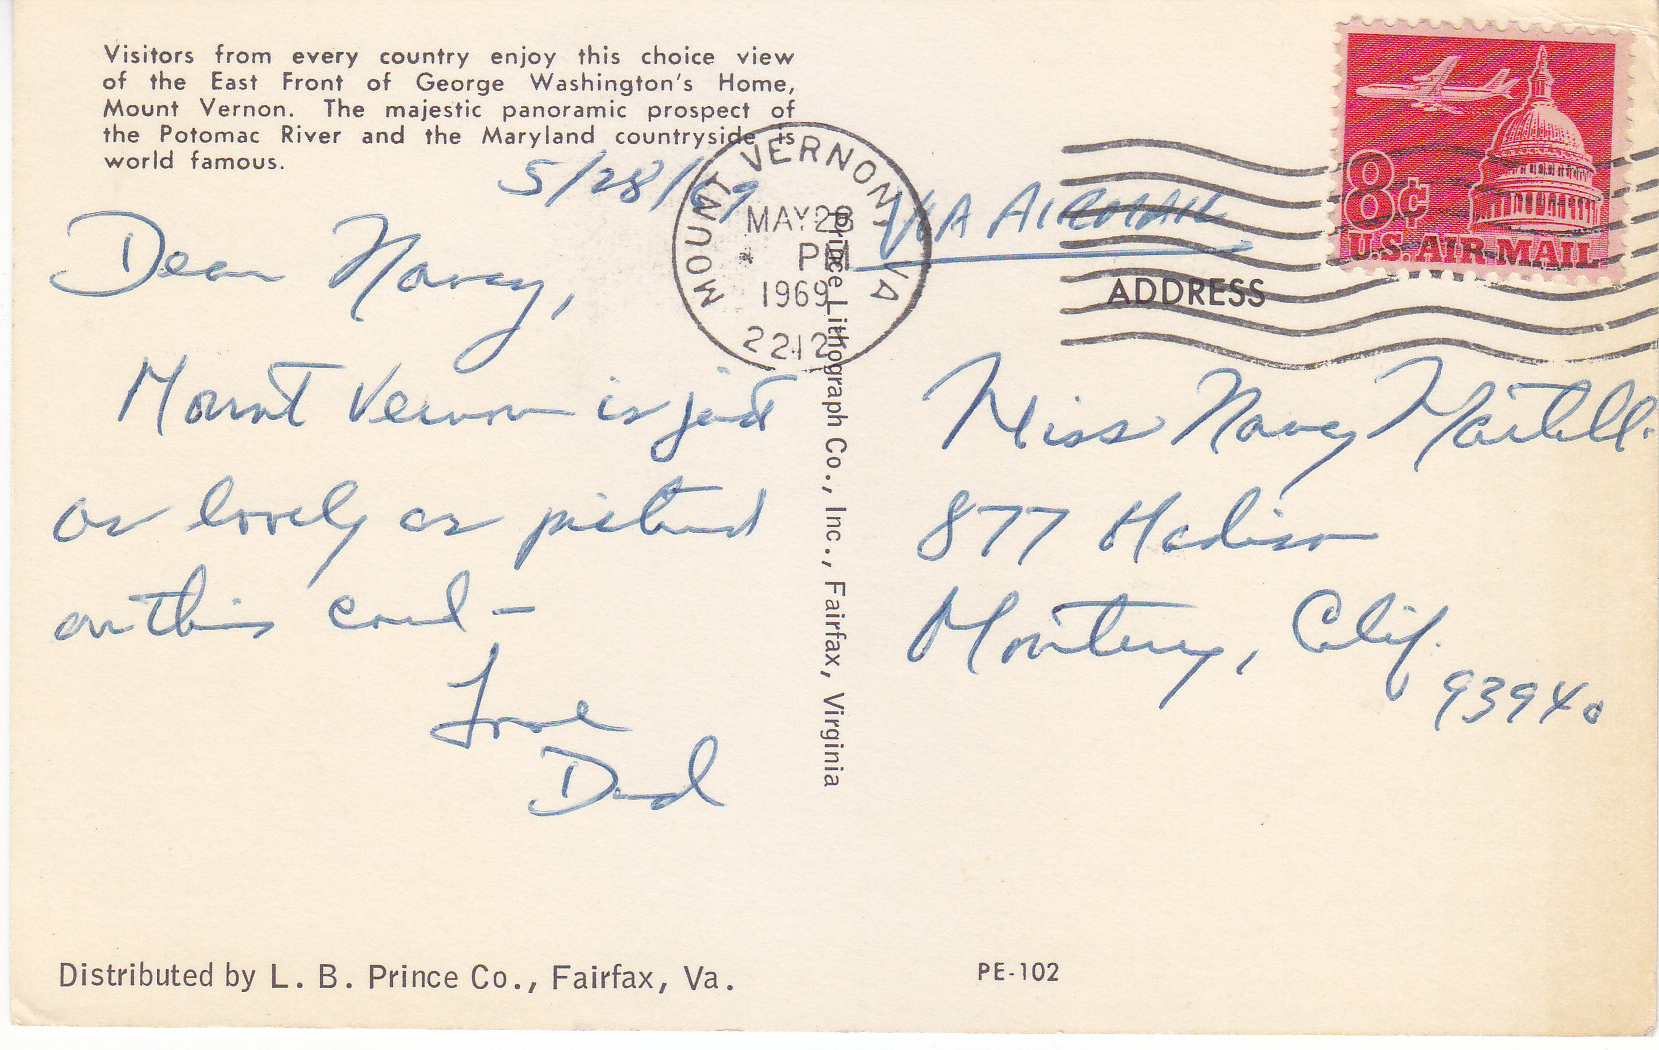 Visitors from every country enjoy this choice view
of the East Front of George Washington's Home,
Mount Vernon. The majestic panoramic prospect of
the Potomac River and the Maryland countryside is
world famous.
5/28/69
Dear Nancy,
Mount Vernon is just
as lovely as pictured
on this card —
Love
Dad
Distributed by L. B. Prince Co., Fairfax, Va.
MOUNT VERNON, VA
MAY 28
PM
1969
22121
Prince Lithograph Co., Inc., Fairfax, Virginia
VIA AIRMAIL
8¢
U.S. AIR MAIL
ADDRESS
Miss Nancy Martell
877 Madison
Monterey, Calif.
93940
PE-102